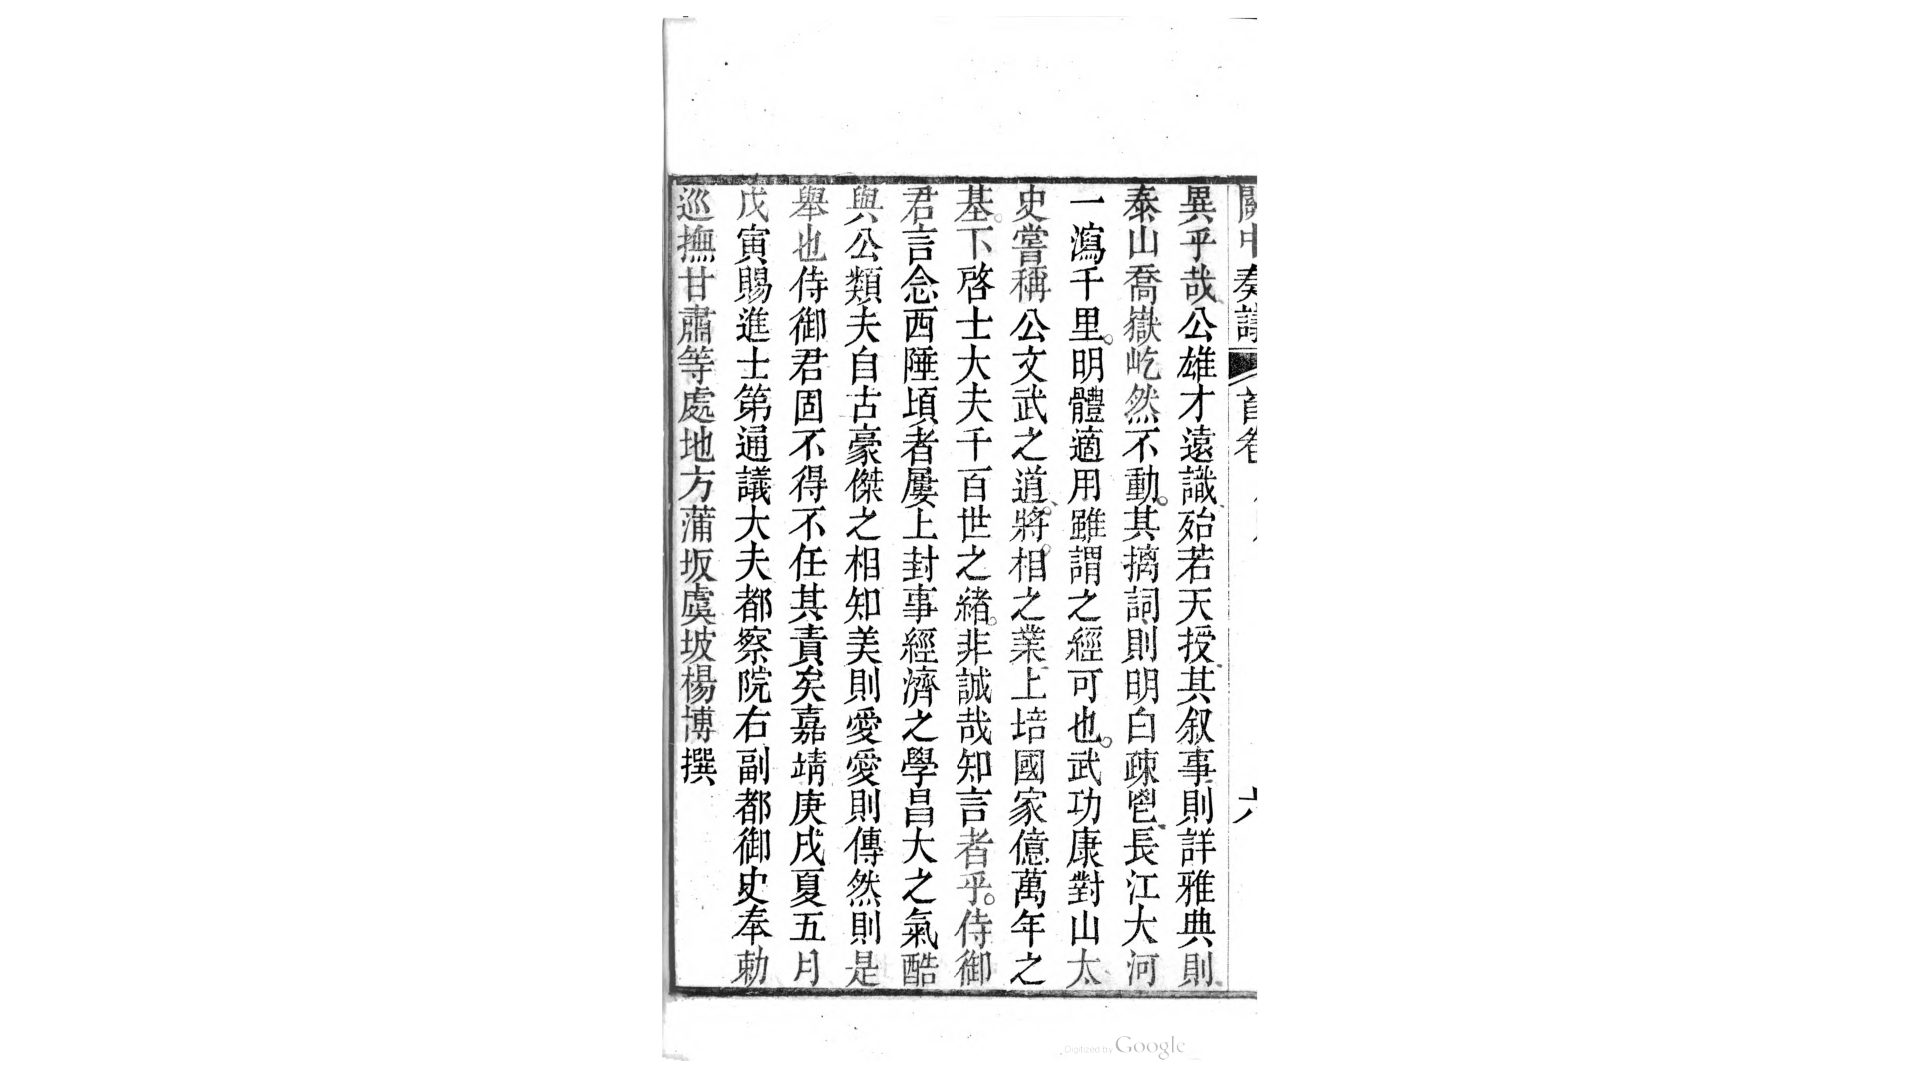 關中奏議 首卷 六
異乎哉公雄才遠識殆若天授其叙事則詳雅典則
泰山喬嶽屹然不動。其摛詞則明白疎鬯長江大河
一瀉千里。明體適用雖謂之經可也。武功康對山太
史嘗稱公文武之道、將。相。之業上培國家億萬年之
基。下啓士大夫千百世之緒。非誠哉知言者乎。侍御
君言念西陲頃者屢上封事經濟之學昌大之氣酷
與公類夫自古豪傑之相知美則愛愛則傳然則是
舉也侍御君固不得不任其責矣嘉靖庚戌夏五月
戊寅賜進士第通議大夫都察院右副都御史奉勅
巡撫甘肅等處地方蒲坂虞坡楊博撰
Digitized by Google